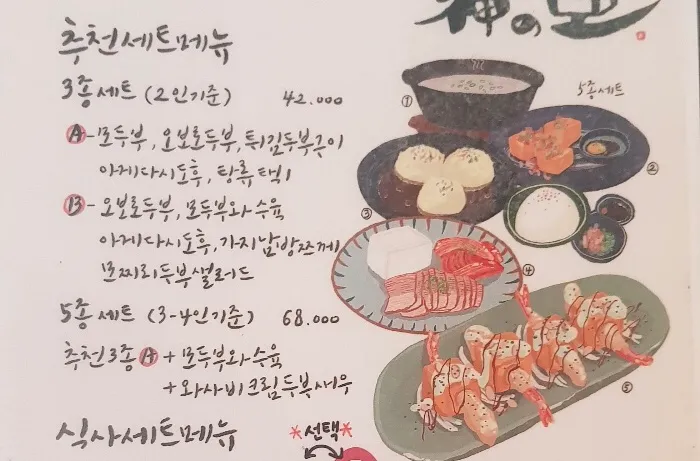 神の豆
추천세트메뉴
3종세트 (2인기준) 42.000
A - 모두부, 오보로두부, 튀김두부구이
아게다시도후, 탕류택1
B - 오보로두부, 모두부와수육
아게다시도후, 가지남방쯔께
모찌리두부샐러드
5종세트 (3-4인기준) 68.000
추천3종 A + 모두부와수육
+ 와사비크림두부새우
식사세트메뉴
*선택*
5종세트
①
②
③
④
⑤